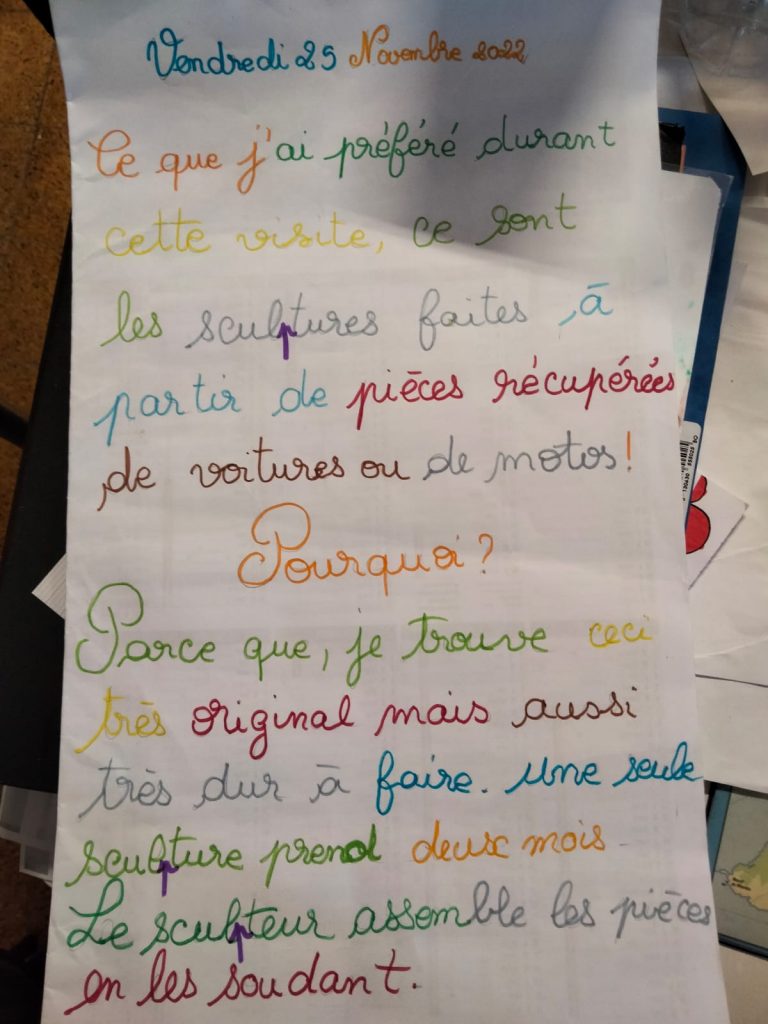 Vendredi 25 Novembre 2022
Ce que j'ai préféré durant
cette visite, ce sont
les sculptures faites à
partir de pièces récupérées
de voitures ou de motos!
Pourquoi?
Parce que, je trouve ceci
très original mais aussi
très dur à faire. Une seule
sculpture prend deux mois.
Le sculpteur assemble les pièces
en les soudant.